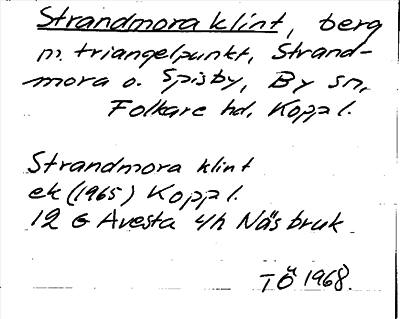 Strandmora klint, berg
m. triangelpunkt, Strand-
mora o. Spisby, By sn,
Folkare hd, Kopp l.
Strandmora klint
ek (1965) Kopp l.
12 G Avesta 4h Näs bruk
TÖ 1968.